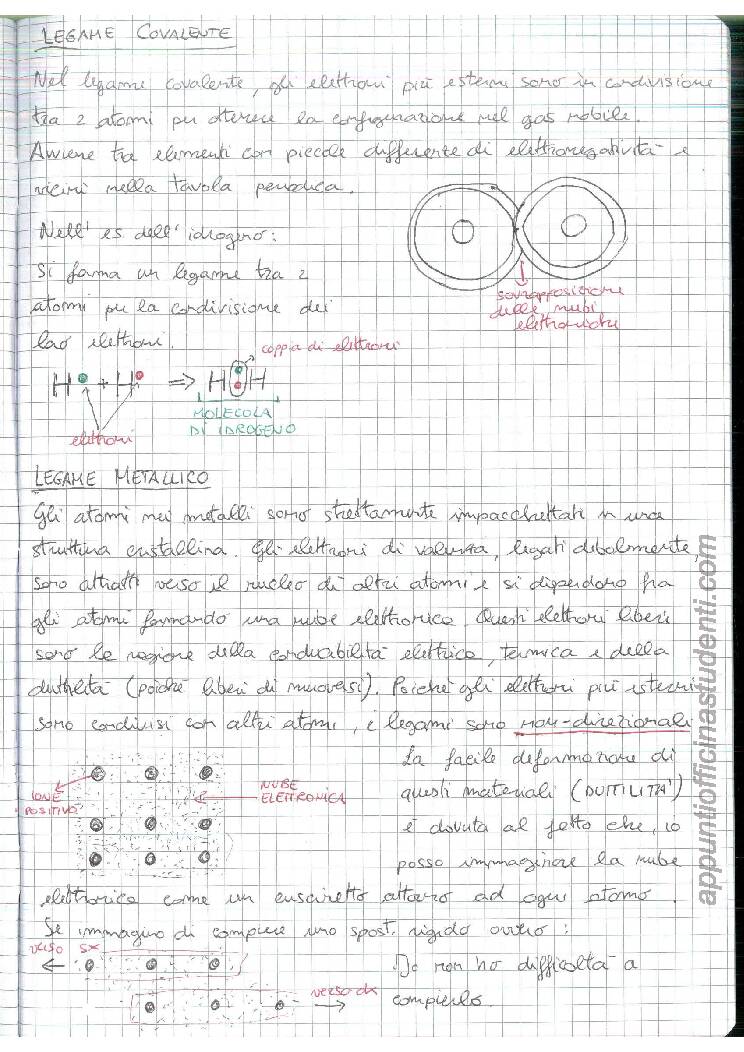 LEGAME COVALENTE
Nel legame covalente, gli elettroni più esterni sono in condivisione
tra 2 atomi per ottenere la configurazione nel gas nobile.
Avviene tra elementi con piccole differenze di elettronegatività e
vicini nella tavola periodica.
Nell' es dell' idrogeno:
Si forma un legame tra 2
atomi per la condivisione dei
loro elettroni.
sovrapposizione
delle nubi
elettroniche
coppia di elettroni
H + H => H H
elettroni
MOLECOLA
DI IDROGENO
LEGAME METALLICO
Gli atomi nei metalli sono strettamente impacchettati in una
struttura cristallina. Gli elettroni di valenza, legati debolmente,
sono attratti verso il nucleo di altri atomi e si disperdono fra
gli atomi formando una nube elettronica. Questi elettroni liberi
sono la ragione della conducibilità elettrica, termica e della
duttilità (poiché liberi di muoversi). Poiché gli elettroni più esterni
sono condivisi con altri atomi, i legami sono non-direzionali
IONE
POSITIVO
NUBE
ELETTRONICA
La facile deformazione di
questi materiali (DUTTILITÀ)
è dovuta al fatto che, io
posso immaginare la nube
elettronica come un cuscinetto attorno ad ogni atomo.
Se immagino di compiere uno spost. rigido ovvero:
verso sx
Io non ho difficoltà a
compierlo.
verso dx
appuntiofficinastudenti.com